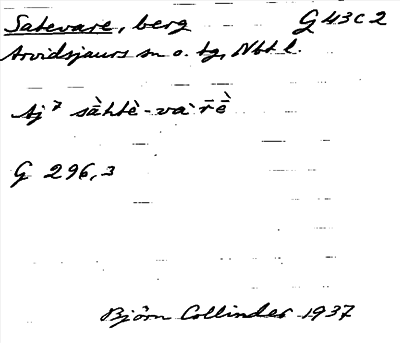 Satevare, berg G 43 C 2
Arvidsjaurs sn o. tg, Nbt l.
Aj 7 sàhtè-và̄rḕ
G 296,3
Björn Collinder 1937